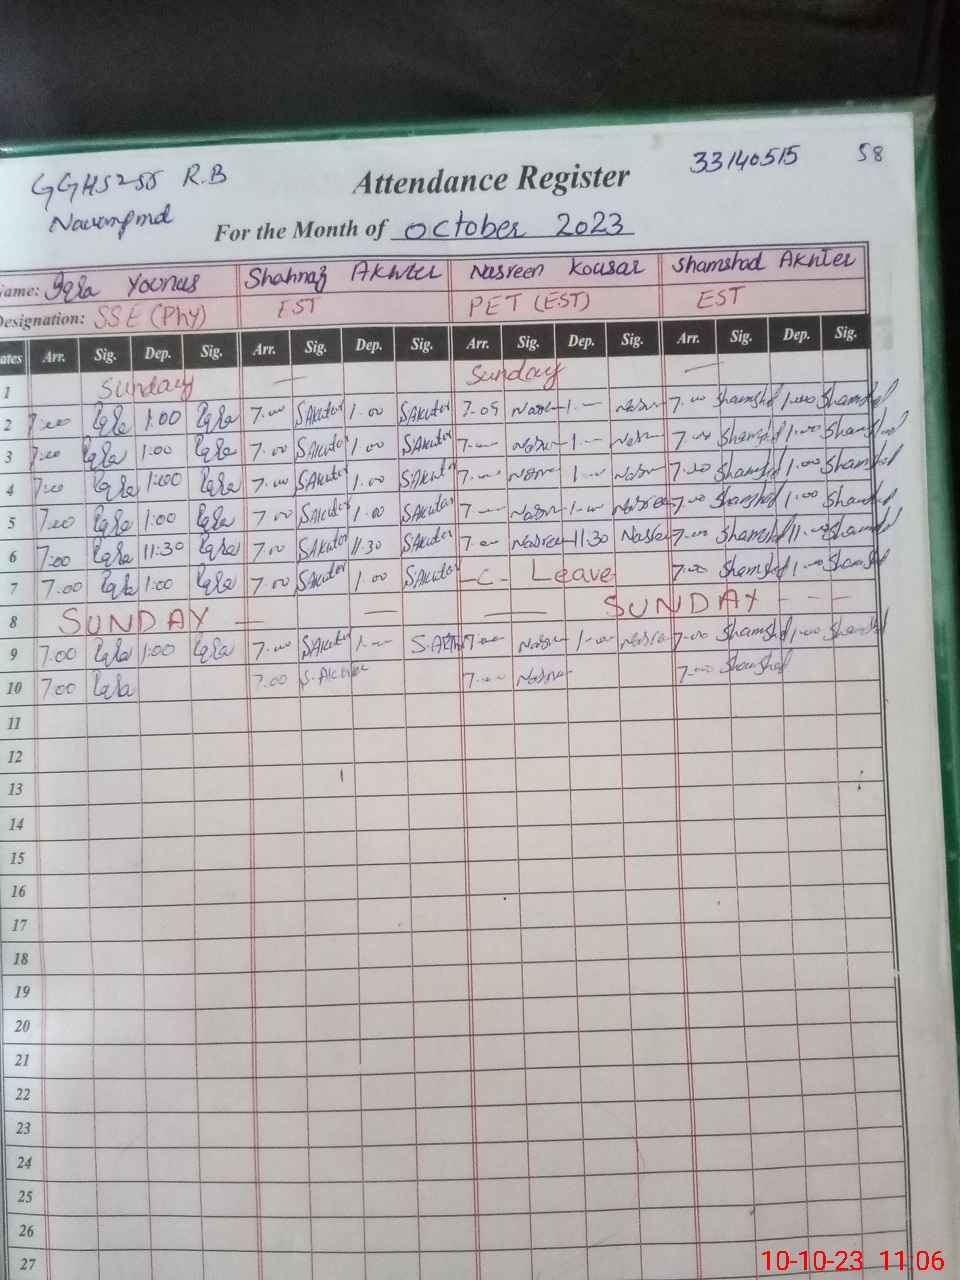 GGHS 255 R.B
33140515
58
Attendance Register
For the Month of October 2023
Name: Iqra Younus Shahnaz Akhter Nasreen Kousar Shamshad Akhter
Designation: SSE (Phy) EST PET (EST) EST
ates Arr. Sig. Dep. Sig. Arr. Sig. Dep. Sig. Arr. Sig. Dep. Sig. Arr. Sig. Dep. Sig.
1 Sunday — Sunday —
2 7:00 Iqra 1:00 Iqra 7.00 SAkhter 1.00 SAkhter 7.05 1.— 7.00 Shamshad 1.00 Shamshad
3 7:00 Iqra 1:00 Iqra 7.00 SAkhter 1.00 SAkhter 7.— 1.— 7.00 Shamshad 1.00 Shamshad
4 7:00 Iqra 1:00 Iqra 7.00 SAkhter 1.00 SAkhter 7.— 1.— 7.00 Shamshad 1.00 Shamshad
5 7:00 Iqra 1:00 Iqra 7.00 SAkhter 1.00 SAkhter 7.— 1.— Nasreen 7.00 Shamshad 1.00 Shamshad
6 7:00 Iqra 11:30 Iqra 7.00 SAkhter 11.30 SAkhter 7.00 Nasreen 11.30 Nasreen 7.00 Shamshad 11.00 Shamshad
7 7.00 Iqra 1:00 Iqra 7.00 SAkhter 1.00 SAkhter -C- Leave 7.00 Shamshad 1.00 Shamshad
8 SUNDAY — — — SUNDAY - - -
9 7.00 Iqra 1:00 Iqra 7.00 SAkhter 1.— 7.00 1.00 7.00 Shamshad 1.00 Shamshad
10 7.00 Iqra 7.00 S.Akhter 7.— 7.00 Shamshad
11
12
13
14
15
16
17
18
19
20
21
22
23
24
25
26
27
10-10-23 11:06